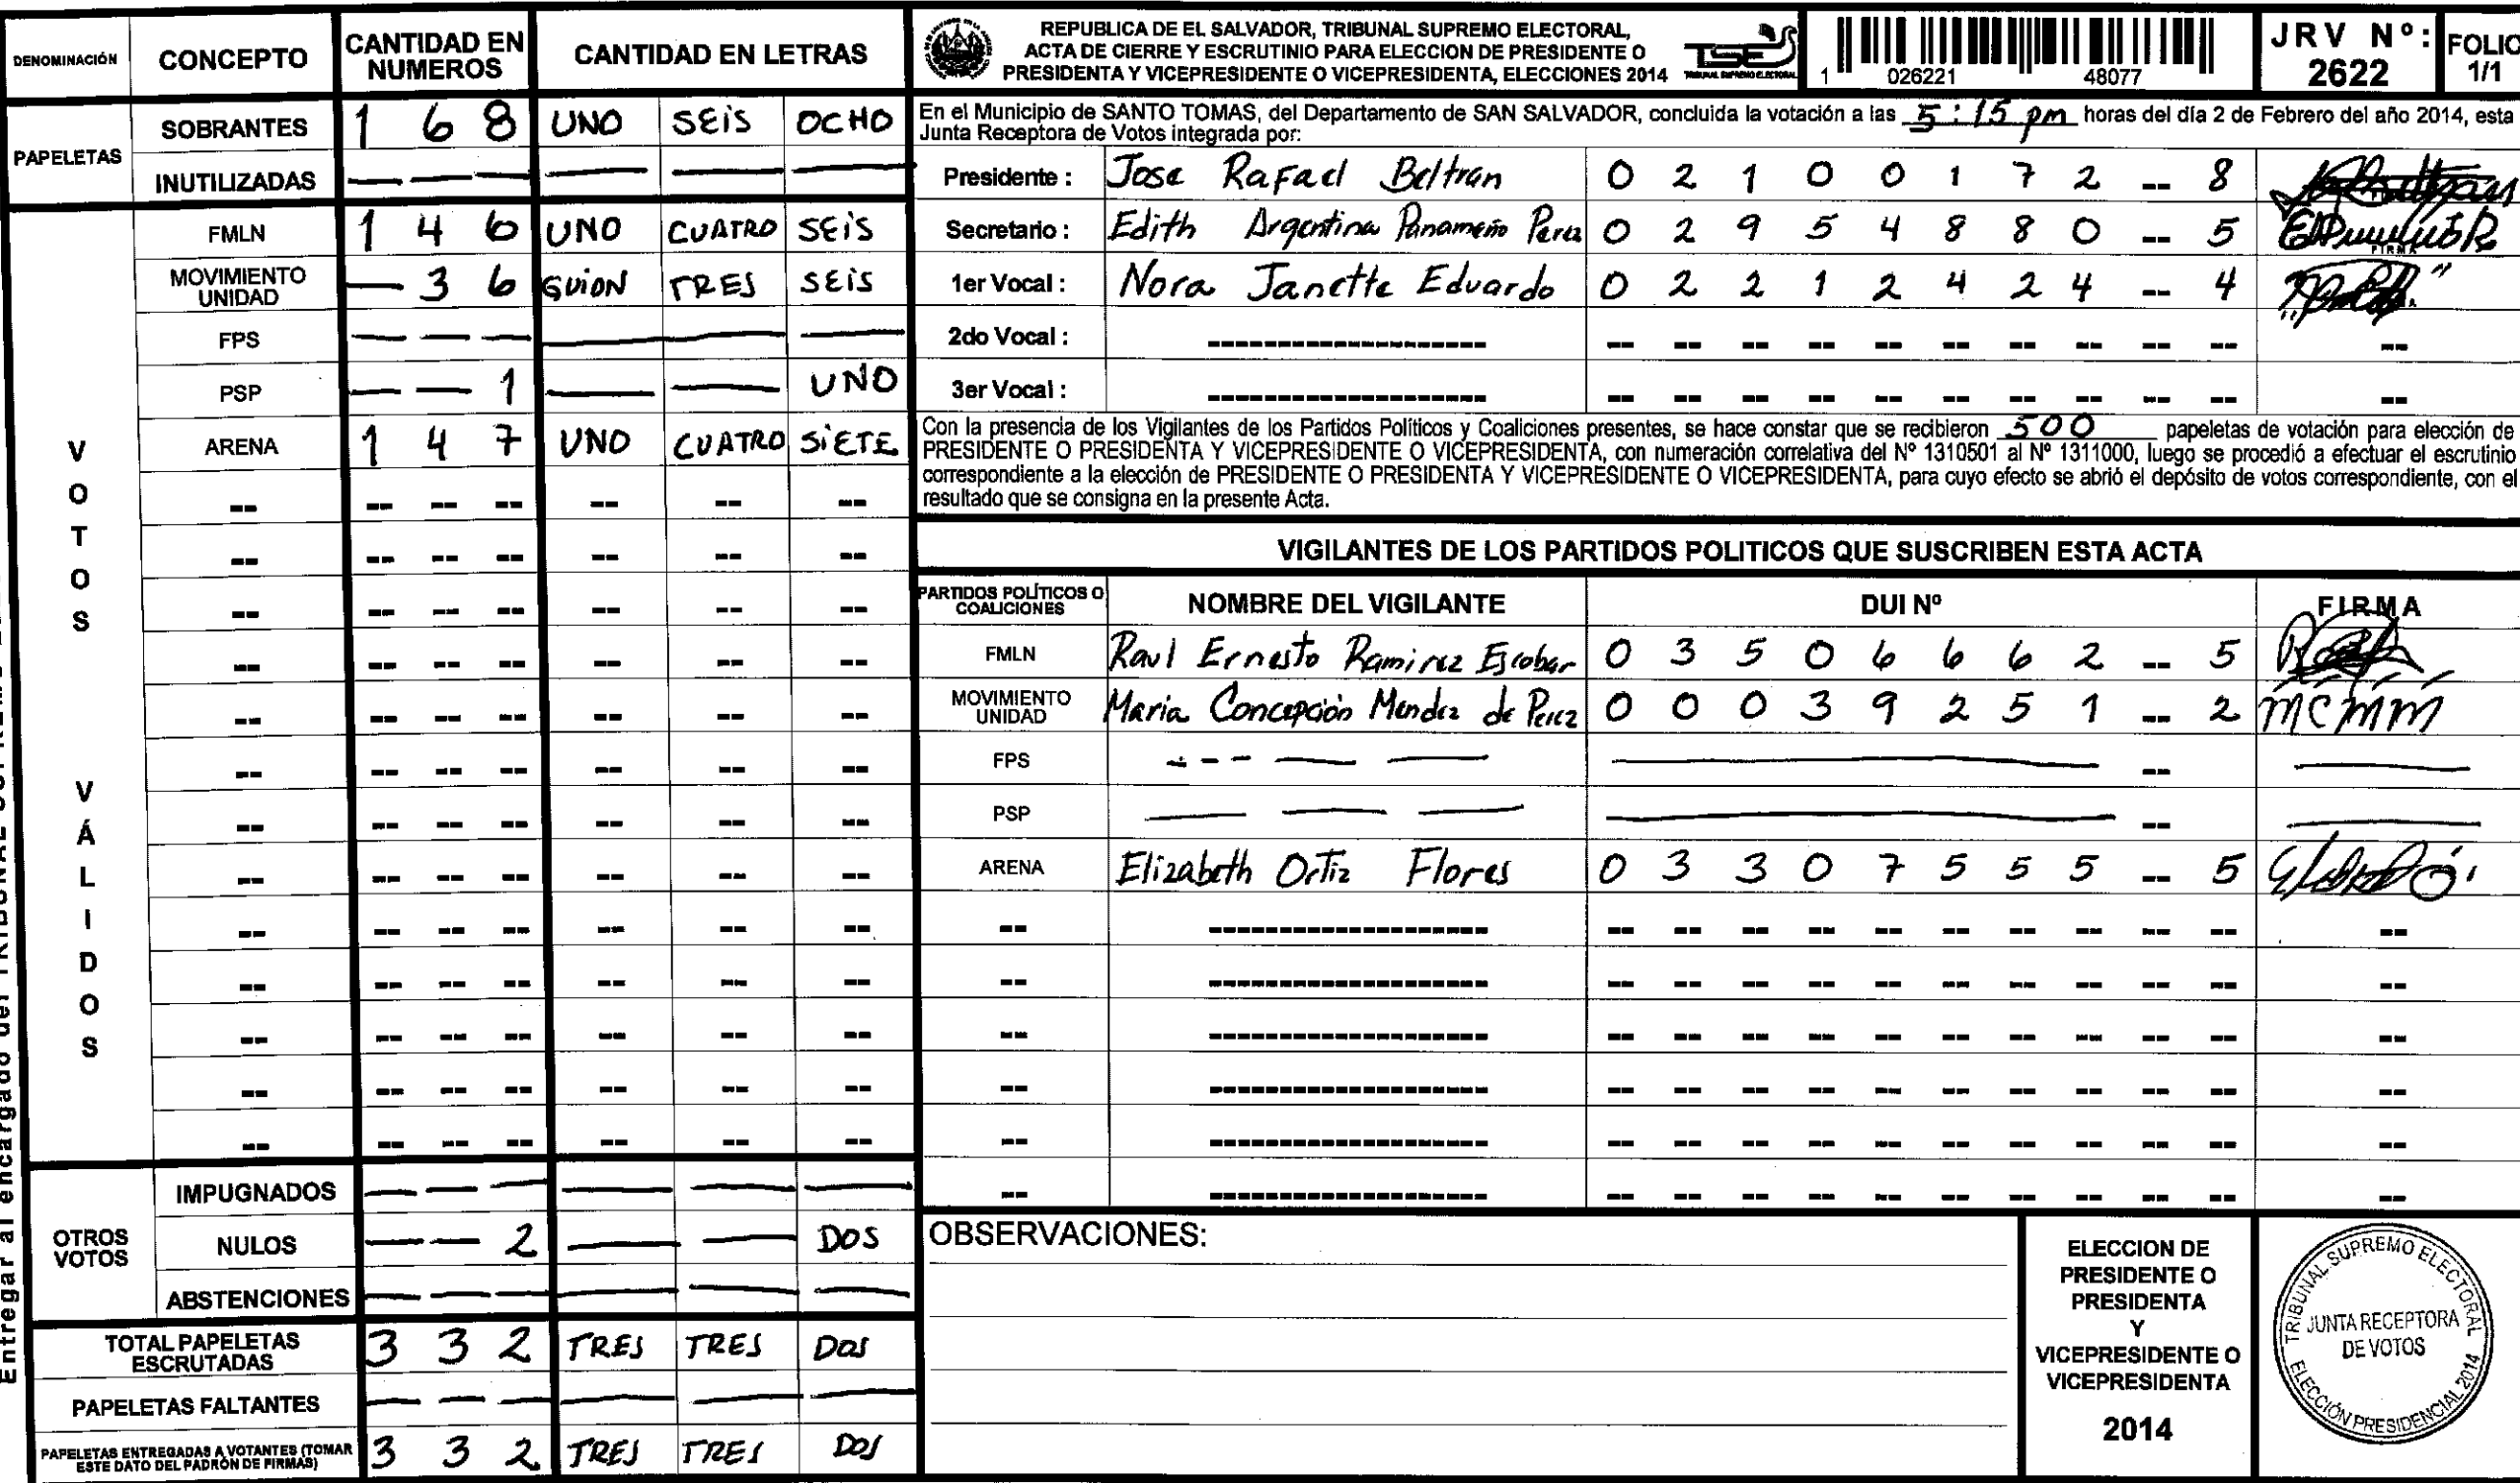 DENOMINACIÓN CONCEPTO CANTIDAD EN NUMEROS CANTIDAD EN LETRAS
PAPELETAS
SOBRANTES 1 6 8 UNO SEIS OCHO
INUTILIZADAS — — — — — —
VOTOS VÁLIDOS
FMLN 1 4 6 UNO CUATRO SEIS
MOVIMIENTO UNIDAD — 3 6 GUION TRES SEIS
FPS — — — — — —
PSP — — 1 — — UNO
ARENA 1 4 7 UNO CUATRO SIETE
-- -- -- -- -- -- --
-- -- -- -- -- -- --
-- -- -- -- -- -- --
-- -- -- -- -- -- --
-- -- -- -- -- -- --
-- -- -- -- -- -- --
-- -- -- -- -- -- --
-- -- -- -- -- -- --
-- -- -- -- -- -- --
-- -- -- -- -- -- --
-- -- -- -- -- -- --
-- -- -- -- -- -- --
-- -- -- -- -- -- --
OTROS VOTOS
IMPUGNADOS — — — — — —
NULOS — — 2 — — DOS
ABSTENCIONES — — — — — —
TOTAL PAPELETAS ESCRUTADAS 3 3 2 TRES TRES DOS
PAPELETAS FALTANTES — — — — — —
PAPELETAS ENTREGADAS A VOTANTES (TOMAR ESTE DATO DEL PADRÓN DE FIRMAS) 3 3 2 TRES TRES DOS
Entregar al encargado del TRIBUNAL
REPUBLICA DE EL SALVADOR, TRIBUNAL SUPREMO ELECTORAL,
ACTA DE CIERRE Y ESCRUTINIO PARA ELECCION DE PRESIDENTE O
PRESIDENTA Y VICEPRESIDENTE O VICEPRESIDENTA, ELECCIONES 2014
TSE
TRIBUNAL SUPREMO ELECTORAL
1 026221 48077
JRV Nº: 2622
FOLIO 1/1
En el Municipio de SANTO TOMAS, del Departamento de SAN SALVADOR, concluida la votación a las 5:15 pm horas del día 2 de Febrero del año 2014, esta
Junta Receptora de Votos integrada por:
Presidente : Jose Rafael Beltran 0 2 1 0 0 1 7 2 -- 8
Secretario : Edith Argentina Panameño Perez 0 2 9 5 4 8 8 0 -- 5
1er Vocal : Nora Janette Eduardo 0 2 2 1 2 4 2 4 -- 4
2do Vocal : -- -- -- -- -- -- -- -- -- -- -- --
3er Vocal : -- -- -- -- -- -- -- -- -- -- -- --
Con la presencia de los Vigilantes de los Partidos Políticos y Coaliciones presentes, se hace constar que se recibieron 500 papeletas de votación para elección de
PRESIDENTE O PRESIDENTA Y VICEPRESIDENTE O VICEPRESIDENTA, con numeración correlativa del Nº 1310501 al Nº 1311000, luego se procedió a efectuar el escrutinio
correspondiente a la elección de PRESIDENTE O PRESIDENTA Y VICEPRESIDENTE O VICEPRESIDENTA, para cuyo efecto se abrió el depósito de votos correspondiente, con el
resultado que se consigna en la presente Acta.
VIGILANTES DE LOS PARTIDOS POLITICOS QUE SUSCRIBEN ESTA ACTA
PARTIDOS POLÍTICOS O COALICIONES NOMBRE DEL VIGILANTE DUI Nº FIRMA
FMLN Raul Ernesto Ramirez Escobar 0 3 5 0 6 6 6 2 -- 5
MOVIMIENTO UNIDAD Maria Concepción Mendez de Perez 0 0 0 3 9 2 5 1 -- 2 MCMM
FPS — — — -- —
PSP — — — -- —
ARENA Elizabeth Ortiz Flores 0 3 3 0 7 5 5 5 -- 5
OBSERVACIONES:
ELECCION DE
PRESIDENTE O
PRESIDENTA
Y
VICEPRESIDENTE O
VICEPRESIDENTA
2014
TRIBUNAL SUPREMO ELECTORAL
JUNTA RECEPTORA
DE VOTOS
ELECCIÓN PRESIDENCIAL 2014